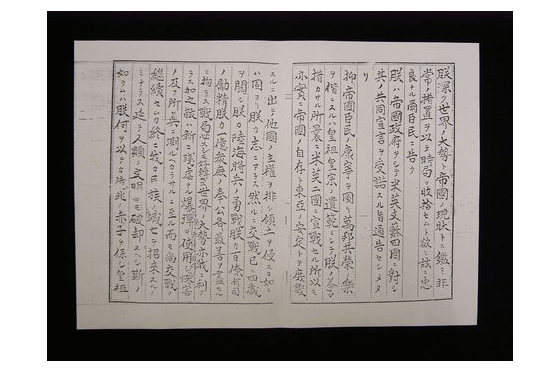 朕深ク世界ノ大勢ト帝國ノ現狀トニ鑑ミ非
常ノ措置ヲ以テ時局ヲ收拾セムト欲シ茲ニ忠
良ナル爾臣民ニ告ク
朕ハ帝國政府ヲシテ米英支蘇四國ニ對シ
其ノ共同宣言ヲ受諾スル旨通告セシメタ
リ
抑帝國臣民ノ康寧ヲ圖リ萬邦共榮ノ樂
ヲ偕ニスルハ皇祖皇宗ノ遺範ニシテ朕ノ拳〻
措カサル所曩ニ米英二國ニ宣戰セル所以モ
亦實ニ帝國ノ自存ト東亞ノ安定トヲ庶幾
スルニ出テ他國ノ主權ヲ排シ領土ヲ侵スカ如キ
ハ固ヨリ朕カ志ニアラス然ルニ交戰已ニ四歳
ヲ閲シ朕カ陸海將兵ノ勇戰朕カ百僚有司
ノ勵精朕カ一億衆庶ノ奉公各〻最善ヲ盡セル
ニ拘ラス戰局必スシモ好轉セス世界ノ大勢亦我ニ利ア
ラス加之敵ハ新ニ殘虐ナル爆彈ヲ使用シ惨害
ノ及フ所眞ニ測ルヘカラサルニ至ル而モ尚交戰ヲ
繼續セムカ終ニ我カ民族ノ滅亡ヲ招來スルノ
ミナラス延テ人類ノ文明ヲモ破却スヘシ斯ノ
如クムハ朕何ヲ以テカ億兆ノ赤子ヲ保シ皇祖